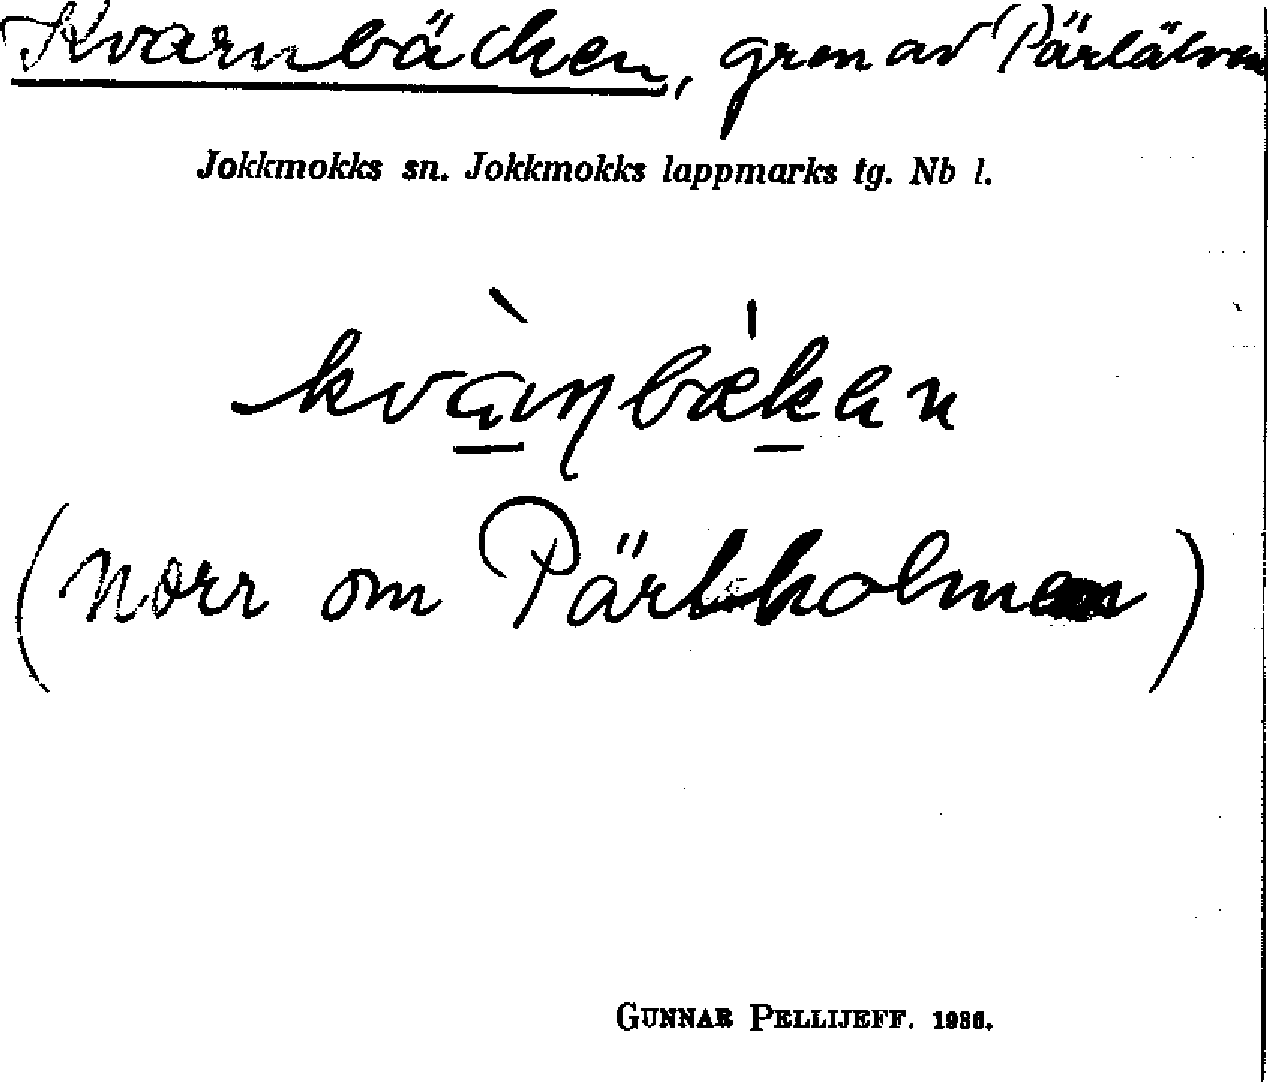 Kvarnbäcken, gren av Pärlälven
Jokkmokks sn. Jokkmokks lappmarks tg. Nb l.
(Norr om Pärlholmen)
GUNNAR PELLIJEFF. 1936.